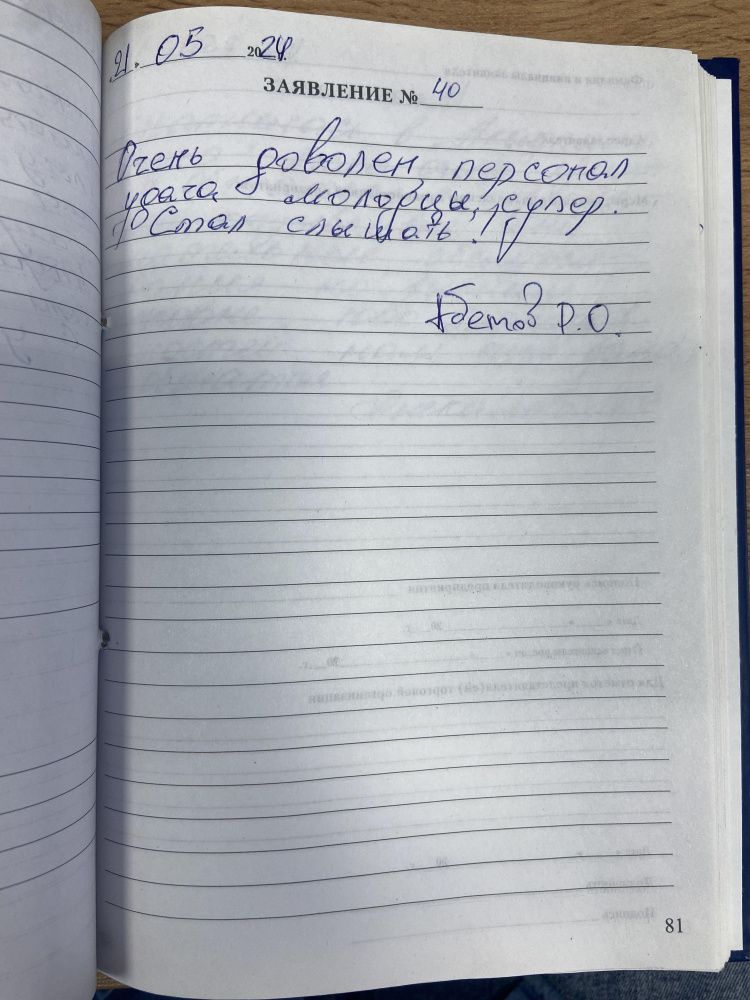 21. 05 2024.
ЗАЯВЛЕНИЕ № 40
Очень доволен, персонал
удача молодцы, супер.
Стал слышать!
Абетов Р.О.
81